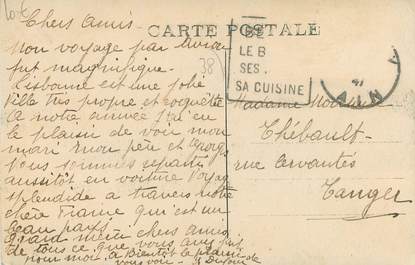 CARTE POSTALE
Chers Amis
Mon voyage par avion
fut magnifique.
Lisbonne est une jolie
ville très propre et coquette
A notre arrivée j'ai eu
le plaisir de voir mon
mari mon père et
nous sommes repartis
aussitôt en voiture Voyage
splendide a travers notre
chère France qui est un
beau pays.
Grand merci chers amis
de tout ce que vous avez fait
pour moi. A Bientôt le plaisir de
vous voir
38
LE B
SES.
SA CUISINE
AIN
Madame
Thébault
rue Cervantès
Tanger